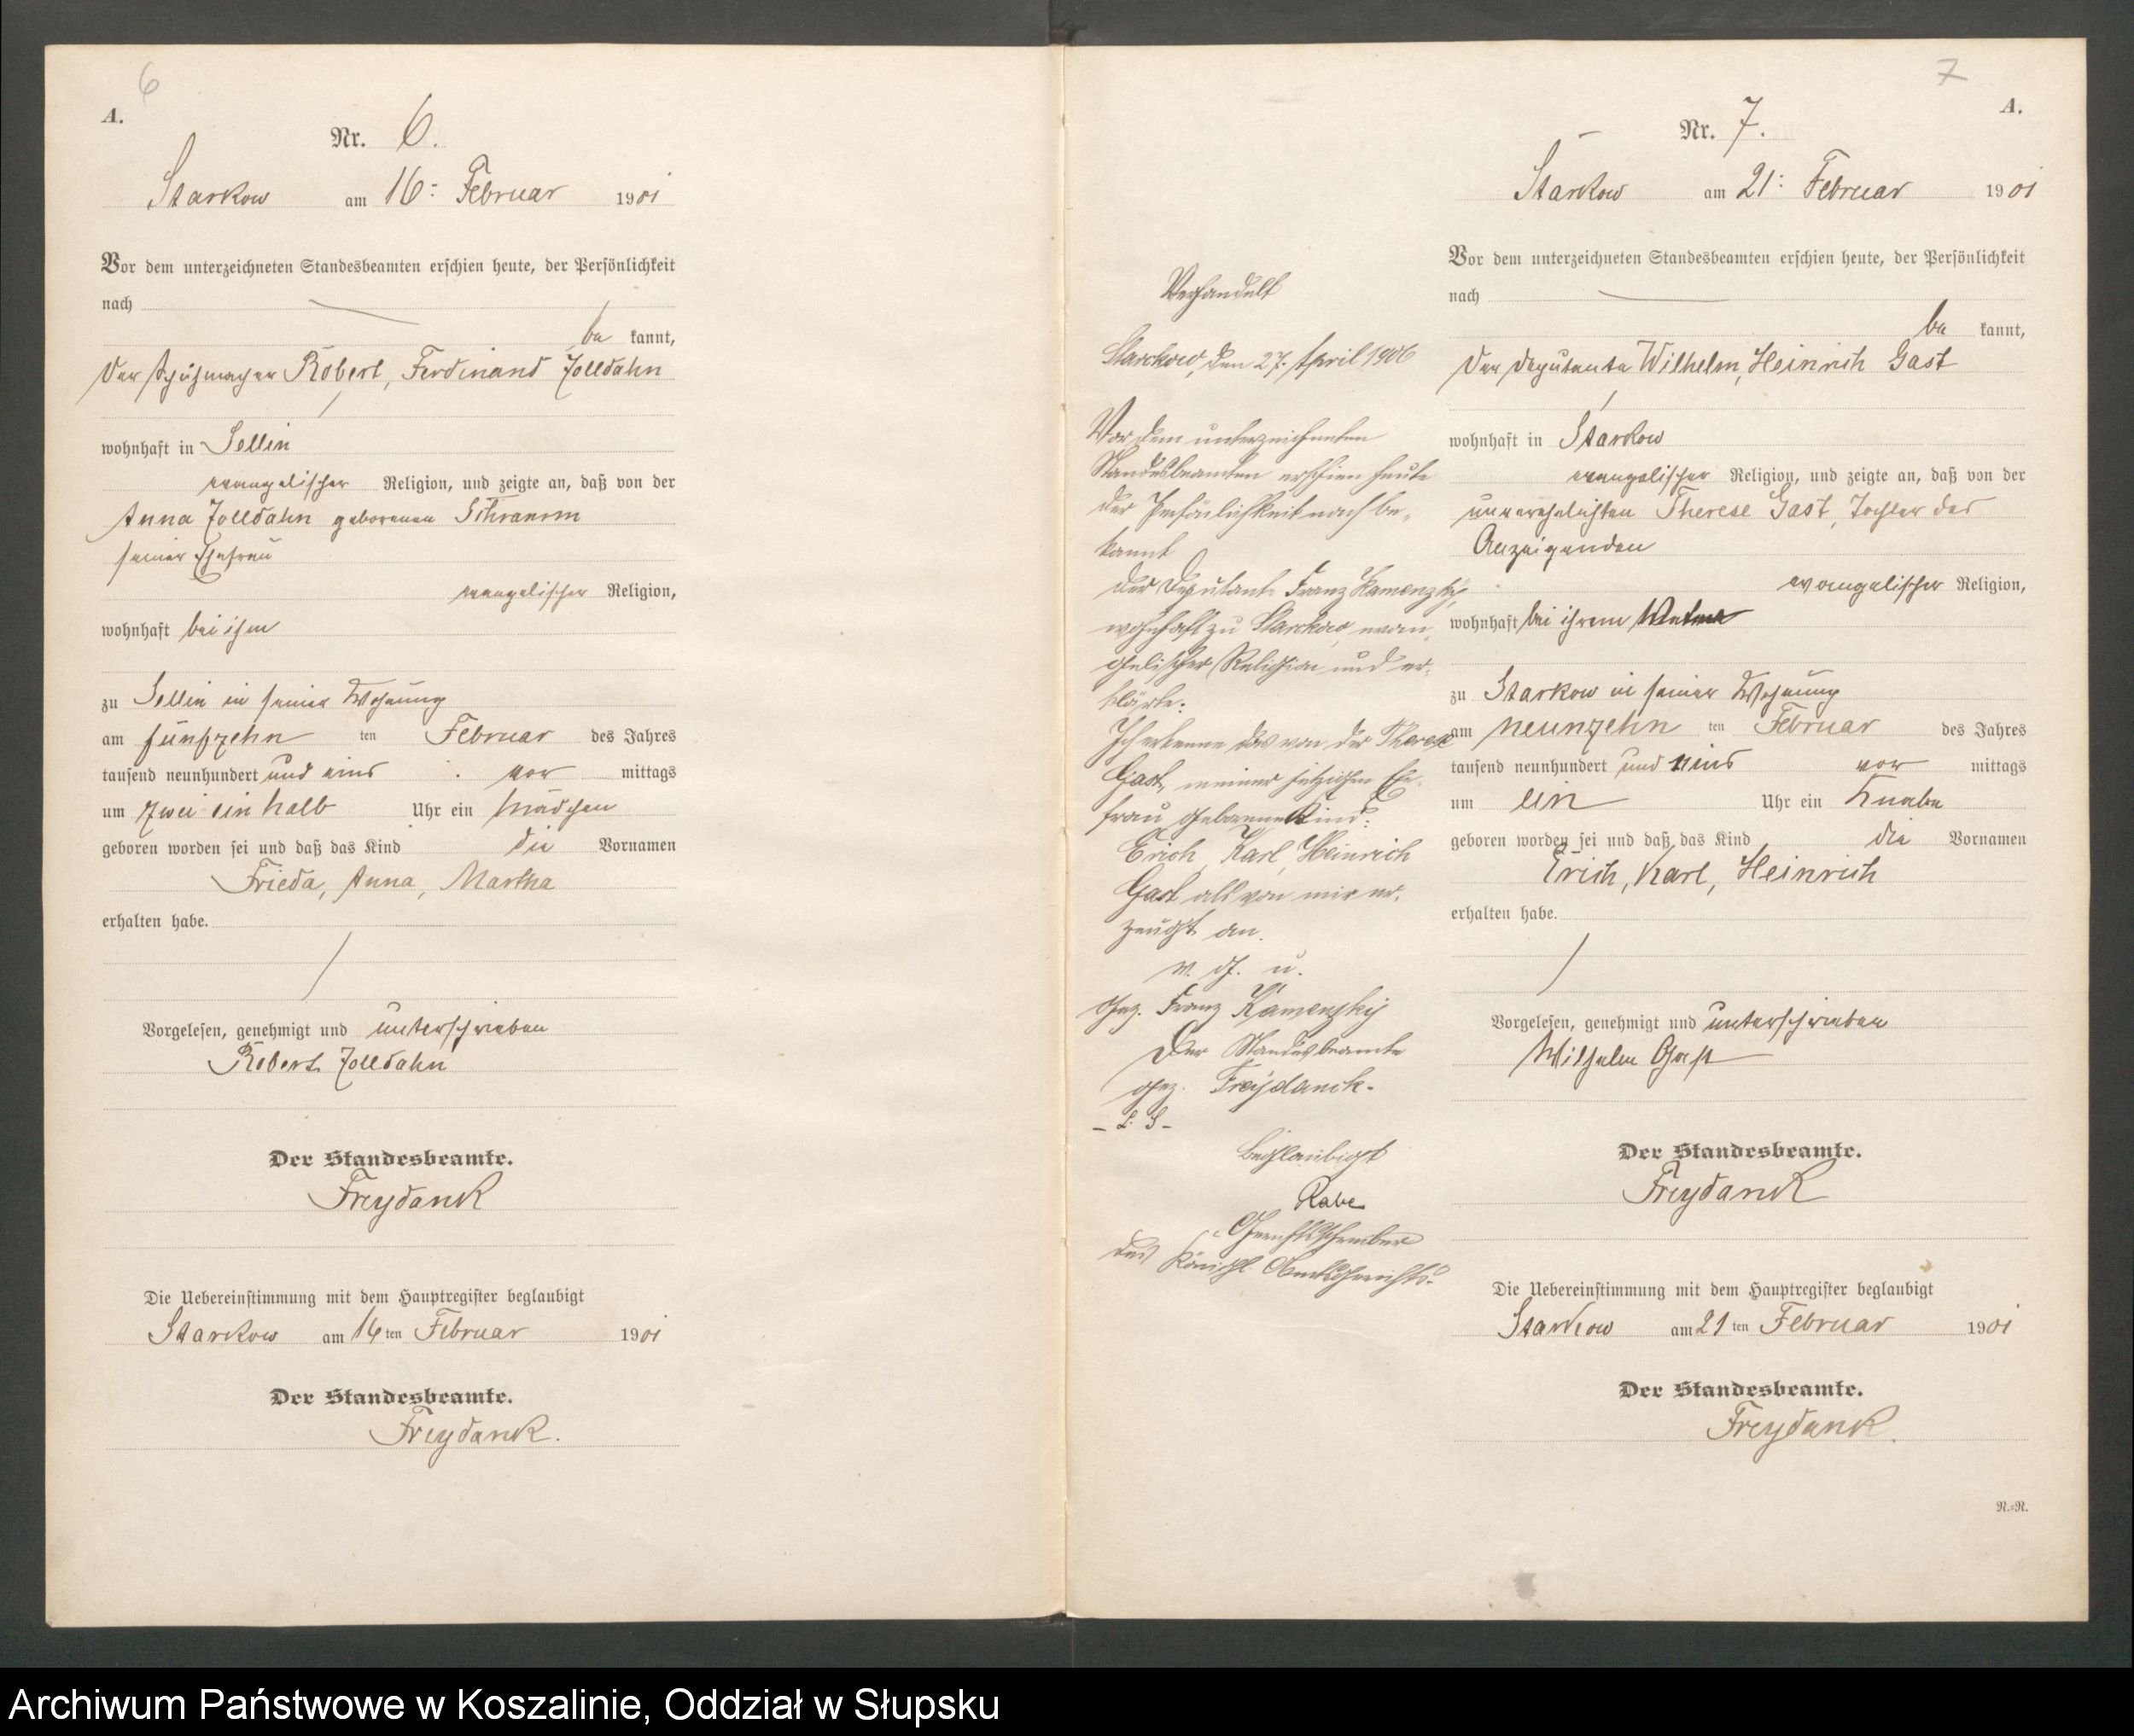 6
A.
Nr. 6.
Starkow am 16= Februar 1901
Vor dem unterzeichneten Standesbeamten erschien heute, der Persönlichkeit
nach
be kannt,
der Schuhmacher Robert, Ferdinand Zolldahn
wohnhaft in Sellin
evangelischer Religion, und zeigte an, daß von der
Anna Zolldahn geborenen Schramm
seiner Ehefrau
evangelischer Religion,
wohnhaft bei ihm
zu Sellin in seiner Wohnung
am fünfzehn ten Februar des Jahres
tausend neunhundert und eins vor mittags
um zwei ein halb Uhr ein Mädchen
geboren worden sei und daß das Kind die Vornamen
Frieda, Anna, Martha
erhalten habe.
Vorgelesen, genehmigt und unterschrieben
Robert Zolldahn
Der Standesbeamte.
Freydank
Die Uebereinstimmung mit dem Hauptregister beglaubigt
Starkow am 16 ten Februar 1901
Der Standesbeamte.
Freydank.
Verhandelt
Starckow, den 27. April 1906
Vor dem unterzeichneten
Standesbeamten erschien heute
der Persönlichkeit nach be-
kannt
der Deputant Franz Kamenzky,
wohnhaft zu Starckow, evan-
gelischer Religion und er-
klärte:
Ich erkenne das von der Therese
Gast, meiner jetzigen Ehe-
frau geborene Kind:
Erich, Karl, Heinrich
Gast als von mir er-
zeugt an.
v. g. u.
gez. Franz Kamenzky
Der Standesbeamte
gez. Freydanck.
- L. S -
Beglaubigt
Rabe
Gerichtsschreiber
des Königl. Amtsgerichts.
7
A.
Nr. 7.
Starkow am 21: Februar 1901
Vor dem unterzeichneten Standesbeamten erschien heute, der Persönlichkeit
nach
be kannt,
der Deputante Wilhelm, Heinrich Gast
wohnhaft in Starkow
evangelischer Religion, und zeigte an, daß von der
unverehelichten Therese Gast, Tochter des
Anzeigenden
evangelischer Religion,
wohnhaft bei ihrem
zu Starkow in seiner Wohnung
am neunzehn ten Februar des Jahres
tausend neunhundert und eins vor mittags
um ein Uhr ein Knabe
geboren worden sei und daß das Kind die Vornamen
Erich, Karl, Heinrich
erhalten habe.
Vorgelesen, genehmigt und unterschrieben
Wilhelm Gast
Der Standesbeamte.
Freydank
Die Uebereinstimmung mit dem Hauptregister beglaubigt
Starkow am 21 ten Februar 1901
Der Standesbeamte.
Freydank.
N.=N.
Archiwum Państwowe w Koszalinie, Oddział w Słupsku